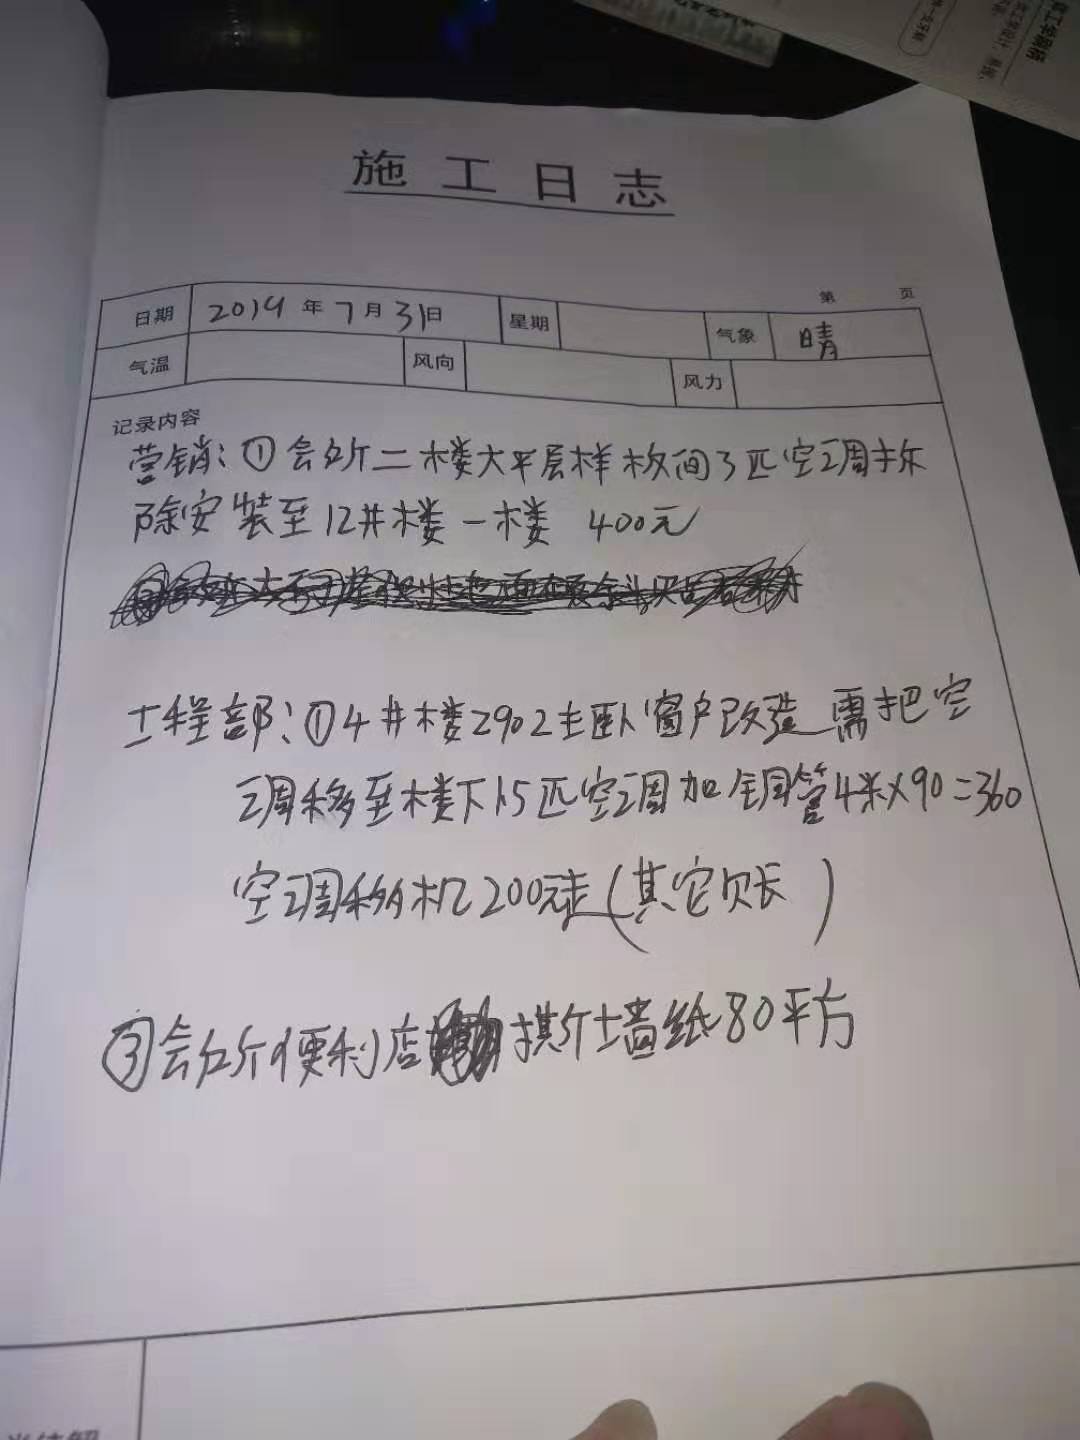 施工日志
第 页
日期 2019年7月31日 星期 气象 晴
气温 风向 风力
记录内容
营销:①会所二楼大平层样板间3匹空调拆
除安装至12#楼一楼 400元
工程部:①4#楼2902主卧窗户改造 需把空
调移至楼下1.5匹空调加铜管4米×90=360
空调移机200元(其它
③会所便利店 墙纸80平方